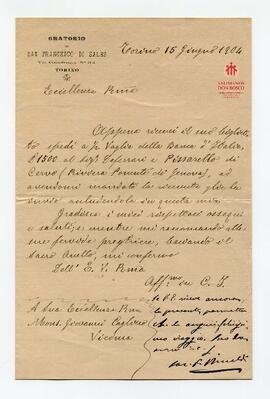 ORATORIO
DI
SAN FRANCESCO DI SALES
Via Cottolengo N° 32
TORINO
Torino 15 Giugno 1904
SALESIANOS
DON BOSCO
Eccellenza Rma
Appena ricevei il suo biglietto
spedii a 1/2 Vaglia della Banca d'Italia,
£1500 ai Sigri Ferrari e Pissarello di
Cervo (Riviera Ponente di Genova), ed
avendomi mandato la ricevuta gliela
invio unendola in questa mia.
Gradisca i miei rispettosi ossequi
e saluti, e mentre mi raccomando alle
sue fervide preghiere, baciando il
Sacro Anello, mi confermo
Dell' E. V. Rma
Affmo in C. J.
A Sua Eccellenza Rma
Mons. Giovanni Cagliero
Viedma
la presente permetta
che le auguri felicissimo
viaggio.
Sac. F. Rinaldi